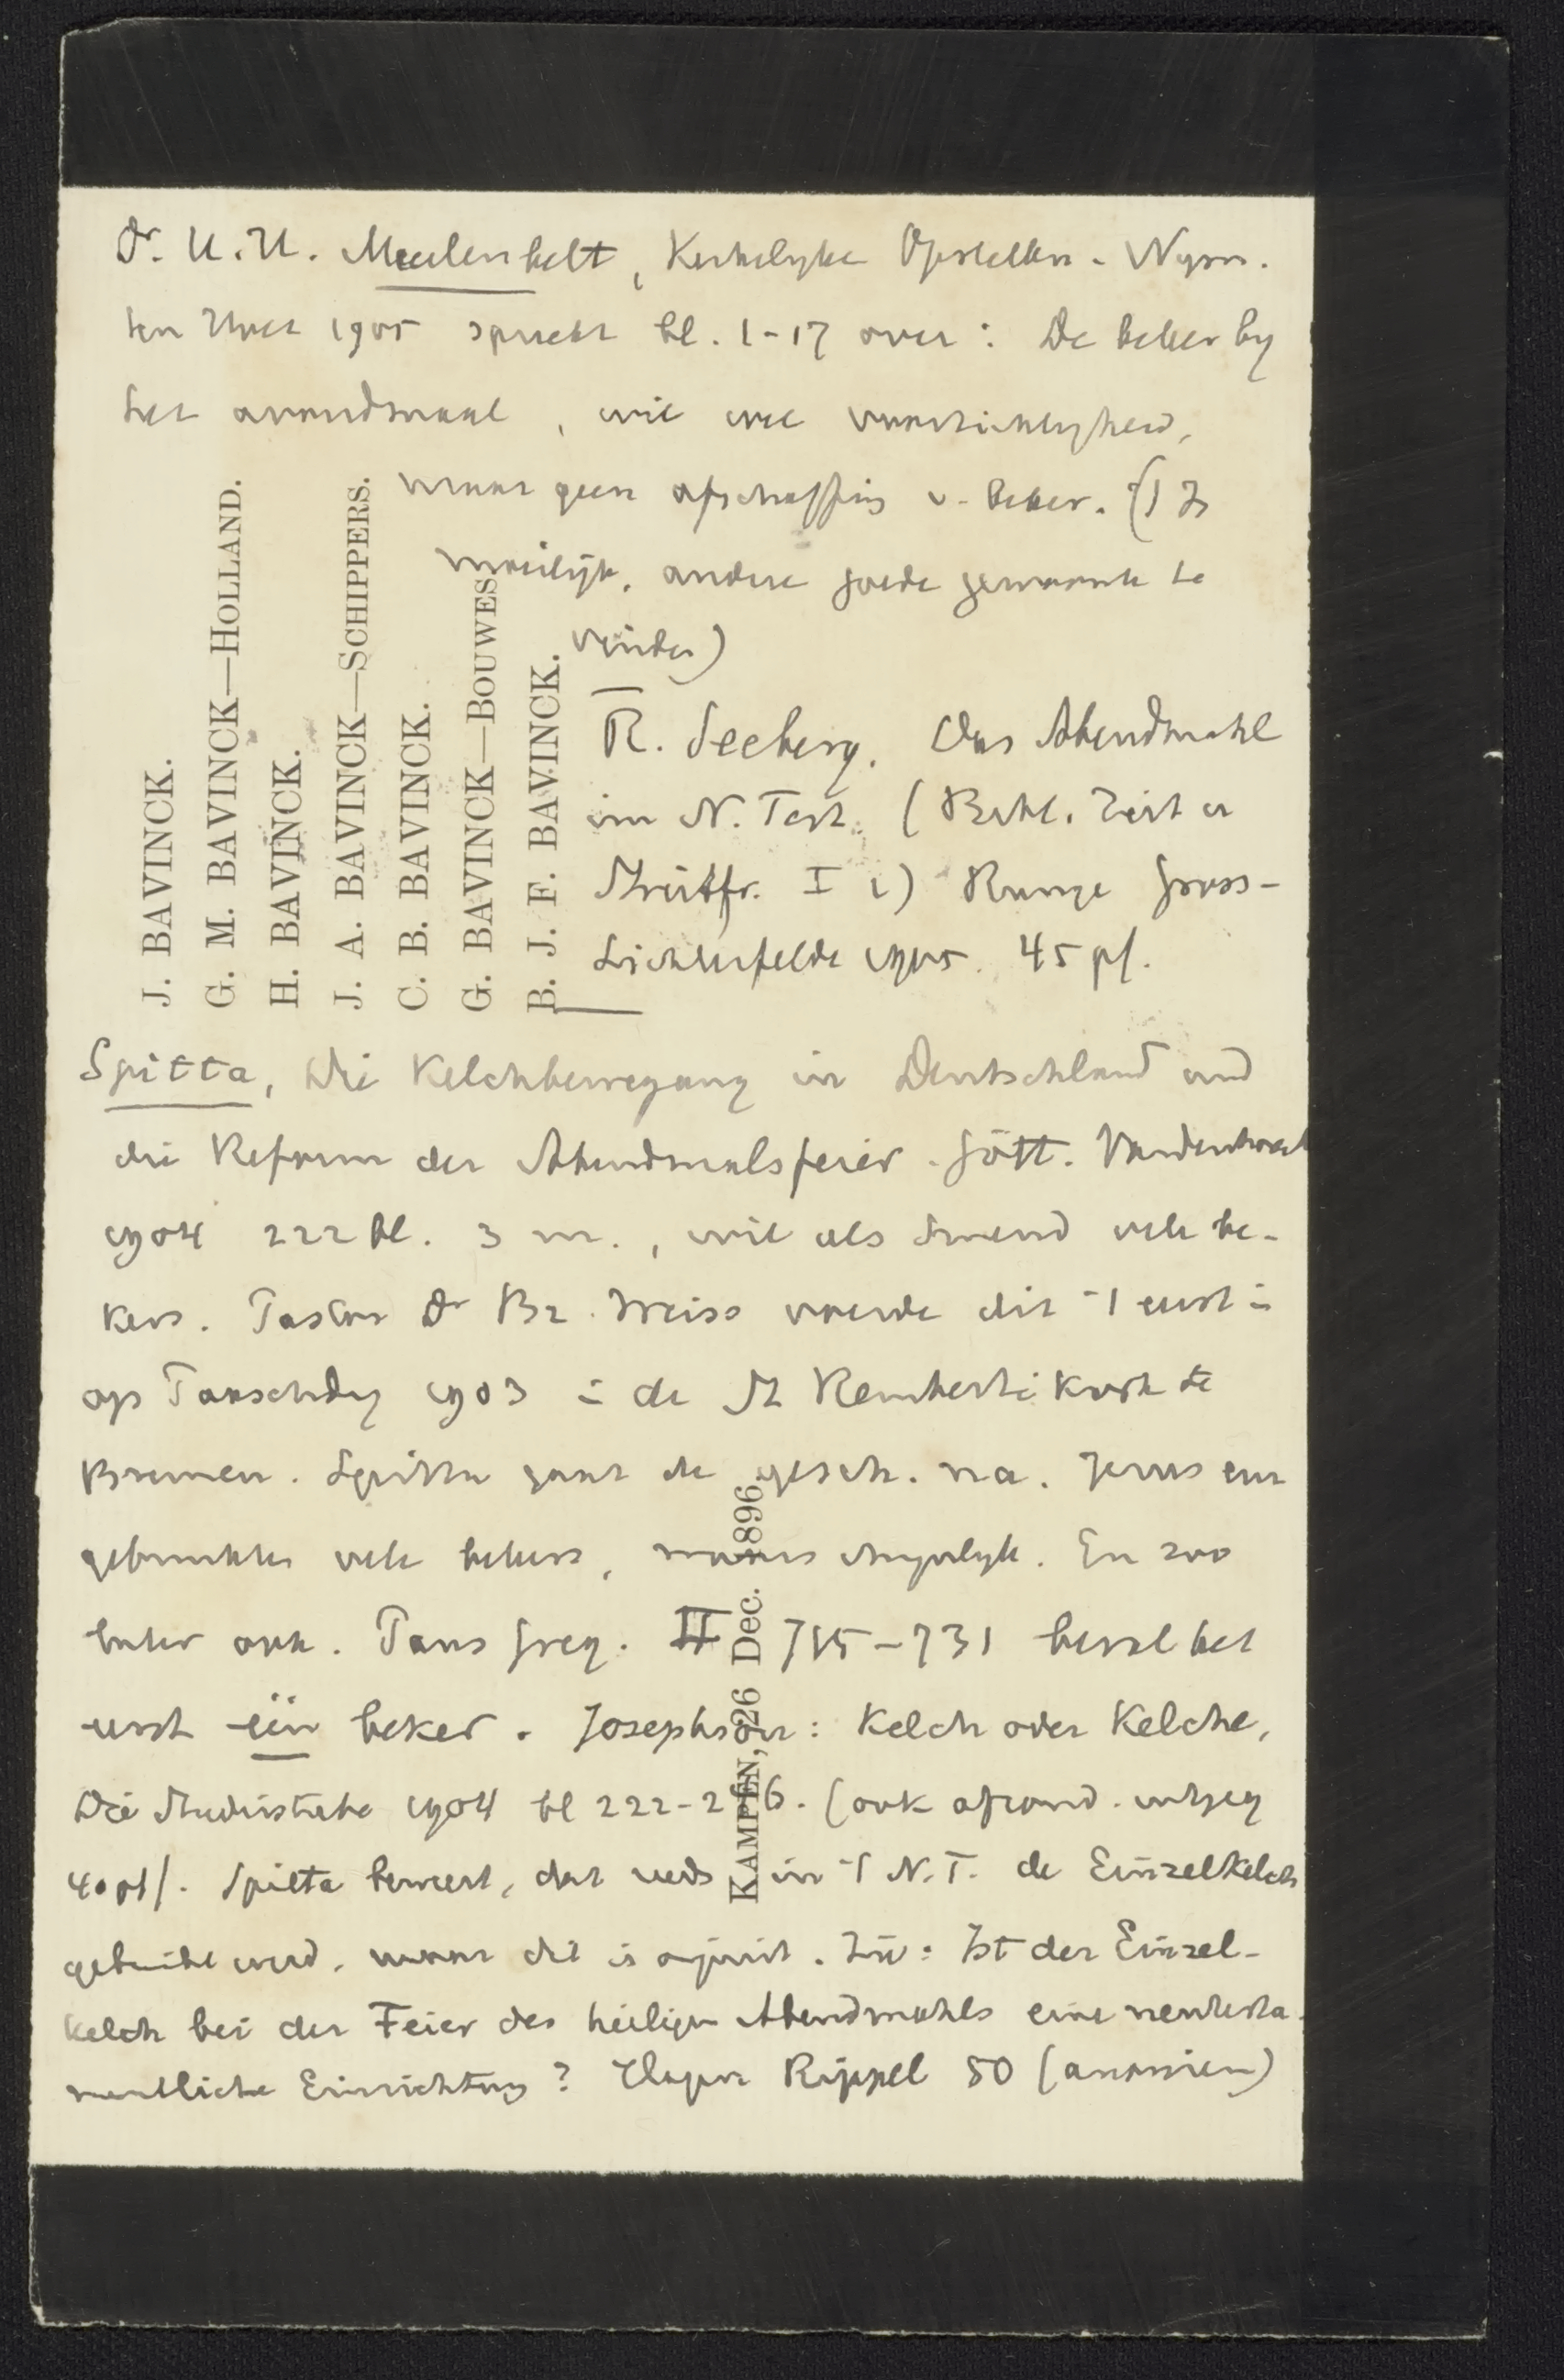 Dr. H. H. Meulenbelt, Kerkelyke Opstellen. Nym.
ten Hoet 1905 spreekt bl. 1-17 over: De beker by
het avondmaal, wil wel voorzichtigheid,
maar geen afschaffing v. beker. (Is
moeilijk, andere goede gewoonte te
vinden)
R. Seeberg. Das Abendmahl
im N. Test. (Bibl. Zeit u
Streitfr. I 2) Runge Gross-
Lichterfelde 1905. 45 pf.
J. BAVINCK.
G. M. BAVINCK—HOLLAND.
H. BAVINCK.
J. A. BAVINCK—SCHIPPERS.
C. B. BAVINCK.
G. BAVINCK—BOUWES
B. J. F. BAVINCK.
Spitta, Die Kelchbewegung in Deutschland und
die Reform der Abendmalsfeier. Gött. Vandenhoeck
1904 222 bl. 3 m., wil als Smend vele be-
kers. Pastor Dr Br. Weiss voerde dit 't eerst in
op Paaschdag 1903 in de St Rembertikerk te
Bremen. Spitta gaat de gesch. na. Jezus en
gebruikten vele bekers, mogelyk. En zoo
later ook. Paus Greg. II 715-731 beval het
eerst één beker. Josephson: Kelch oder Kelche,
Die Studierstube 1904 bl 222-226. (ook afzond. uitgeg
40 pf). Spitta beweert, dat reeds in 't N.T. de Einzelkelch
gebruikt werd, maar dit is onjuist. Zie: Ist der Einzel-
kelch bei der Feier des heiligen Abendmahls eine neutesta-
mentliche Einrichtung? Hagen Rippel 50 (anoniem)
KAMPEN, 26 Dec. 1896.